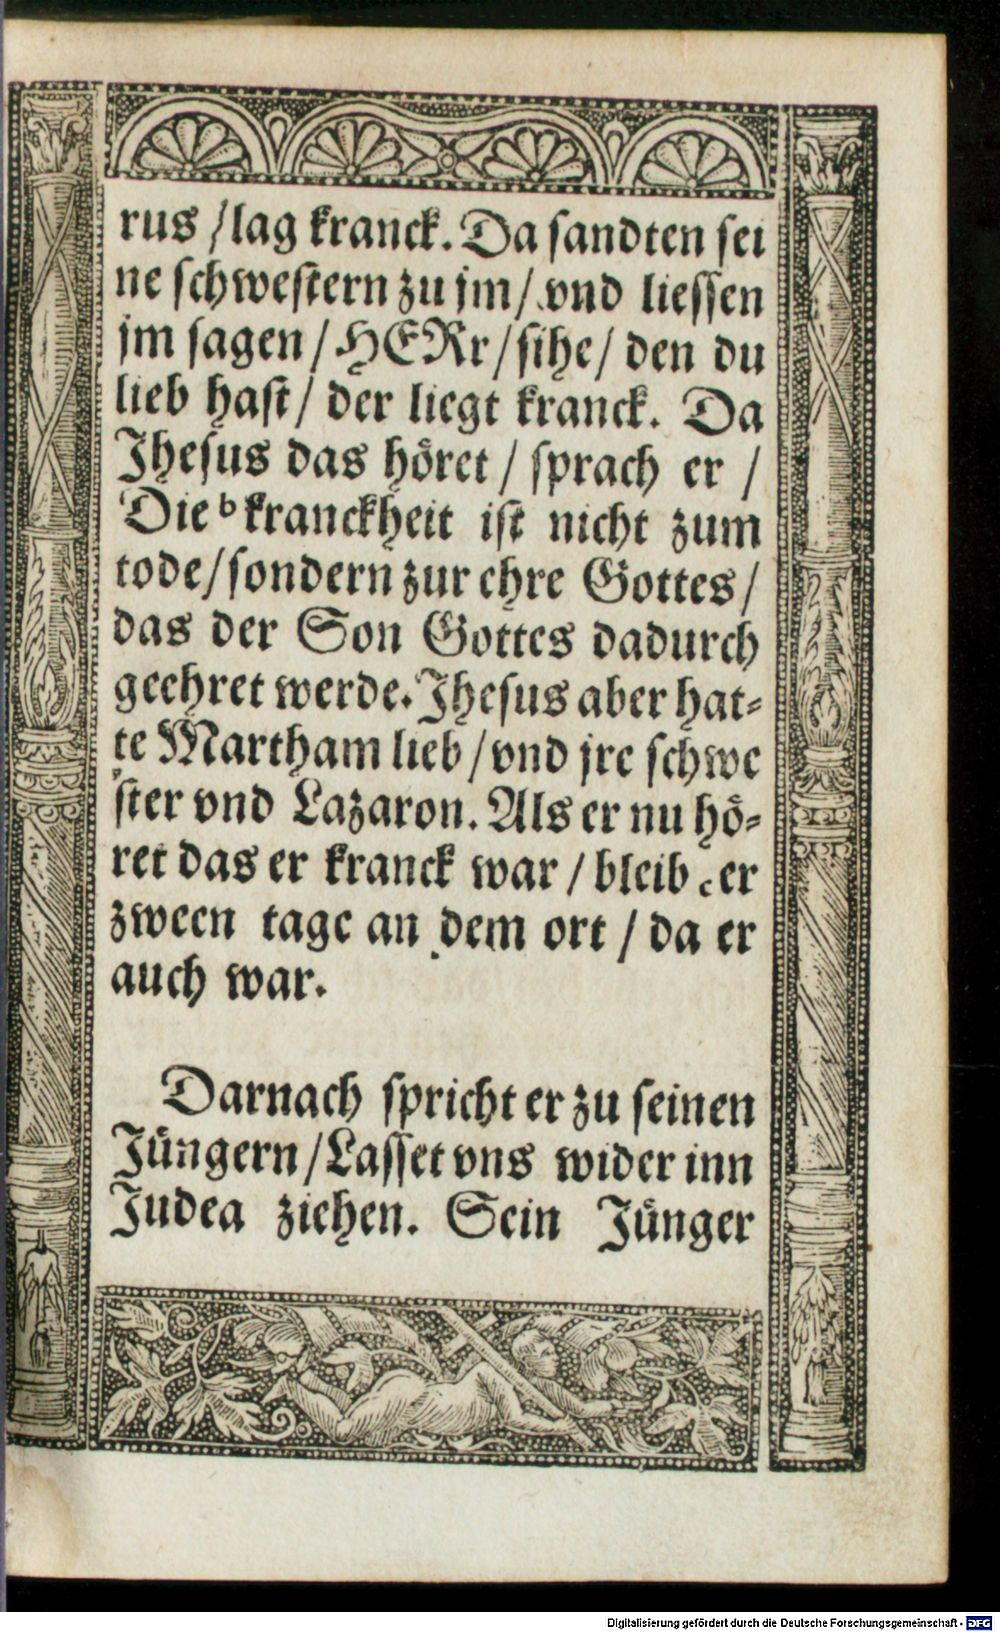 rus /lag kranck. Da sandten sei
ne schwestern zu jm/ vnd liessen
jm sagen / HERr /sihe/ den du
lieb hast/ der liegt kranck. Da
Jhesus das höret / sprach er /
Die ᵇ kranckheit ist nicht zum
tode/sondern zur ehre Gottes/
das der Son Gottes dadurch
geehret werde. Jhesus aber hat⸗
te Martham lieb /vnd jre schwe
ster vnd Lazaron. Als er nu hö⸗
ret das er kranck war / bleib c er
zween tage an dem ort / da er
auch war.
Darnach spricht er zu seinen
Jüngern /Lasset vns wider inn
Judea ziehen. Sein Jünger
Digitalisierung gefördert durch die Deutsche Forschungsgemeinschaft - DFG